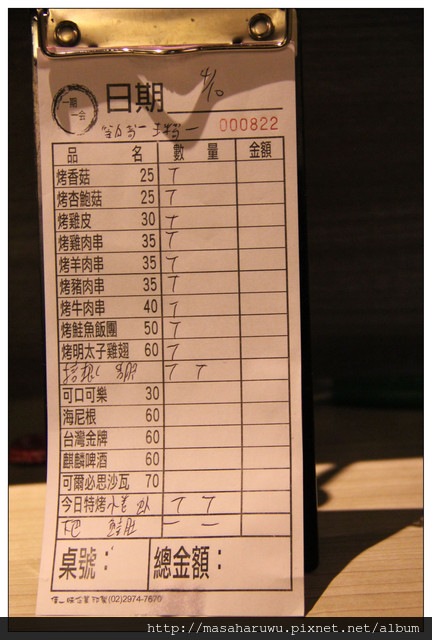 一期一会
日期 4/10
000822
品 名 數 量 金額
烤香菇 25 T
烤杏鮑菇 25 T
烤雞皮 30 T
烤雞肉串 35 T
烤羊肉串 35 T
烤豬肉串 35 T
烤牛肉串 40 T
烤鮭魚飯團 50 T
烤明太子雞翅 60 T
T T
可口可樂 30
海尼根 60
台灣金牌 60
麒麟啤酒 60
可爾必思沙瓦 70
今日特烤 小卷 T T
下巴 一 一
桌號: 總金額:
(02)2974-7670
http://masaharuwu.pixnet.net/album